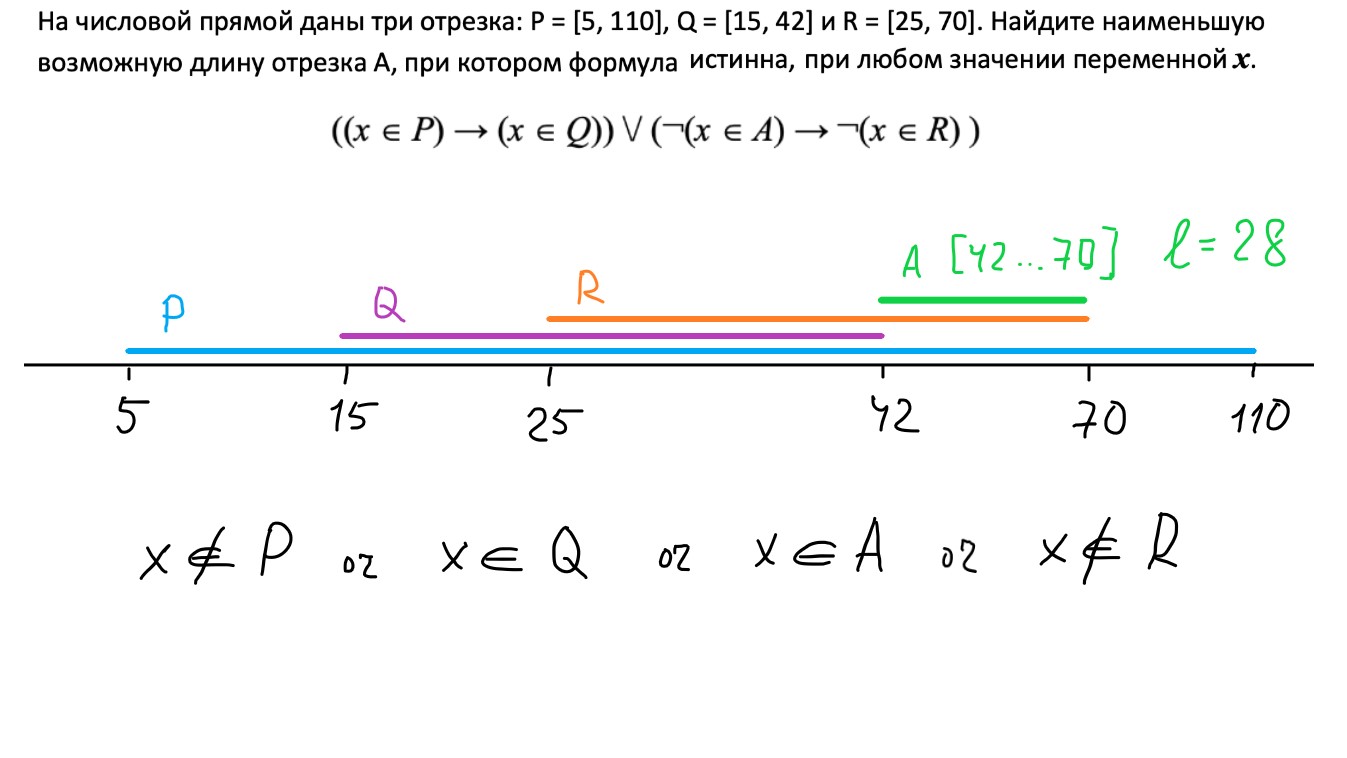 На числовой прямой даны три отрезка: P = [5, 110], Q = [15, 42] и R = [25, 70]. Найдите наименьшую
возможную длину отрезка A, при котором формула истинна, при любом значении переменной x.
((x ∈ P) → (x ∈ Q)) ∨ (¬(x ∈ A) → ¬(x ∈ R) )
A [42...70] l = 28
P Q R
5 15 25 42 70 110
x ∉ P or x ∈ Q or x ∈ A or x ∉ R